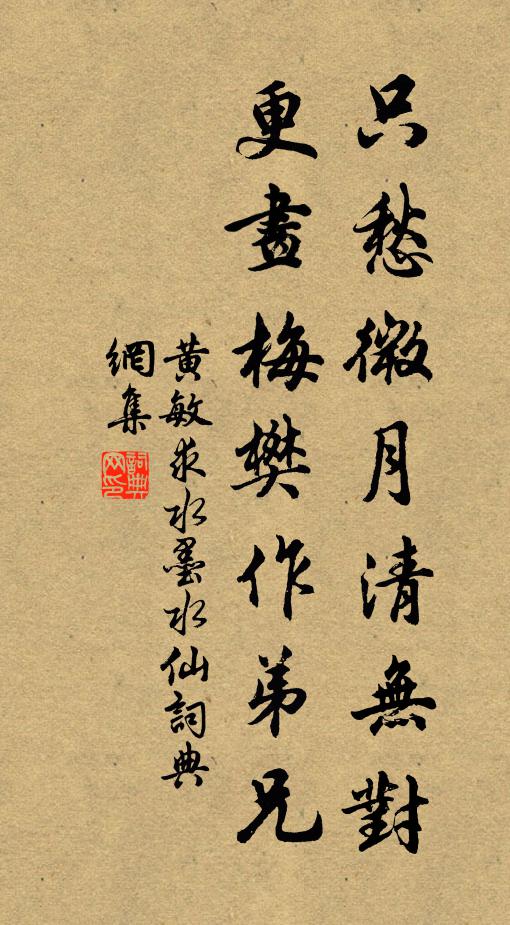 只愁微月清無對
更畫梅樊作弟兄
黄敏求水墨水仙詞典
網集
詞典網印